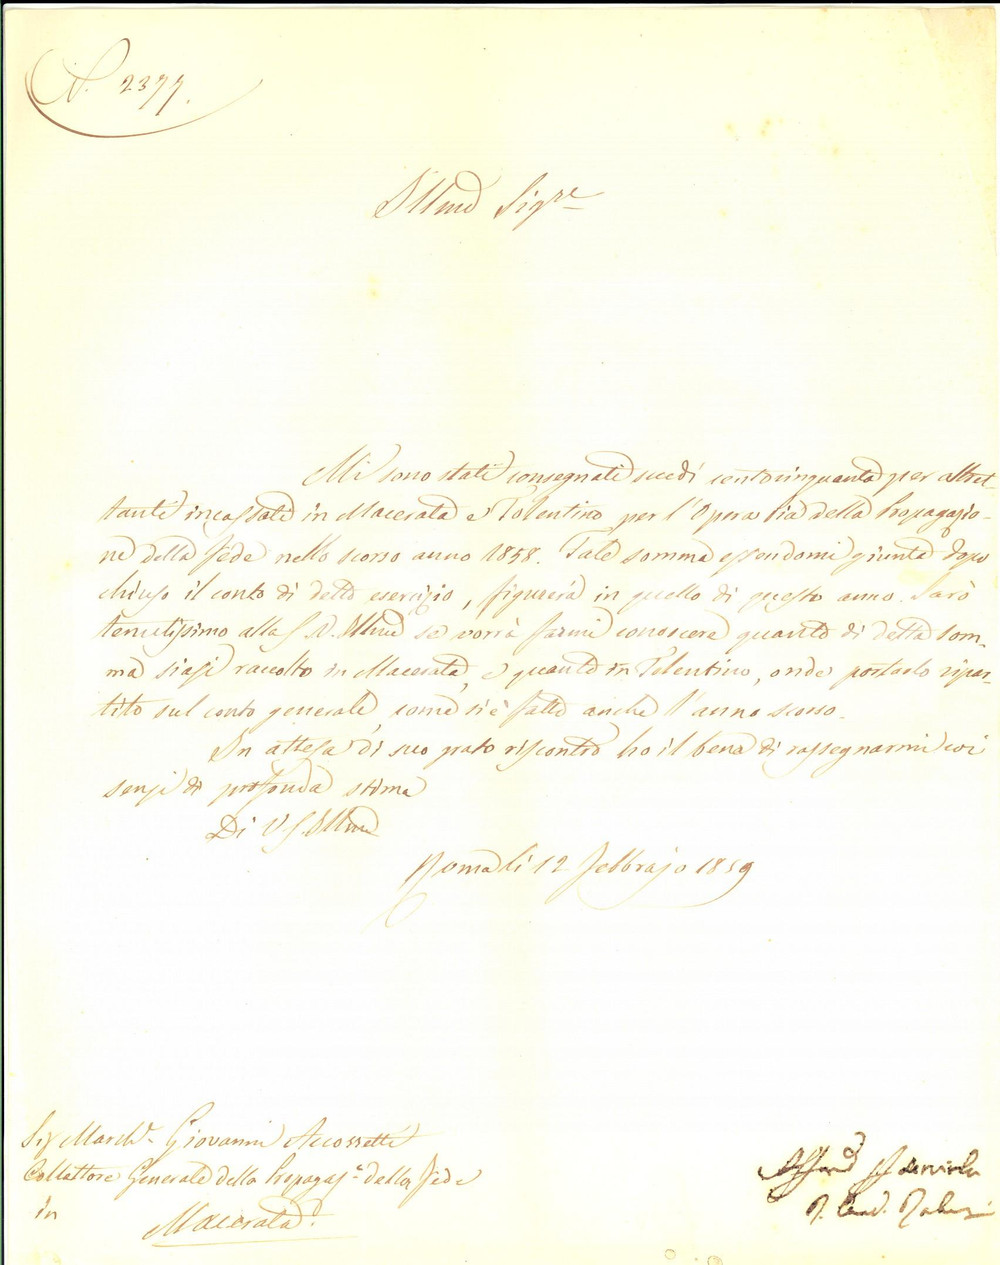 N. 2377.
Illmo Sigre
Mi sono stati consegnati scudi centocinquanta per altret
tanti incassati in Macerata e Tolentino per l'Opera Pia della Propagazio-
ne della Fede nello scorso anno 1858. Tale somma essendomi giunta dopo
chiuso il conto di detto esercizio, figurerà in quello di questo anno. Sarò
tenutissimo alla S. V. Illma se vorrà farmi conoscere quanto di detta som-
ma siasi raccolto in Macerata, e quanto in Tolentino, onde portarlo ripar-
tito sul conto generale, come si è fatto anche l'anno scorso.
In attesa di suo grato riscontro ho il bene di rassegnarmi coi
sensi di profonda stima
Di V. S. Illma
Roma li 12 Febbrajo 1859
Sig March. Giovanni Accorretti
Collettore Generale della Propagaz. della Fede
in
Macerata